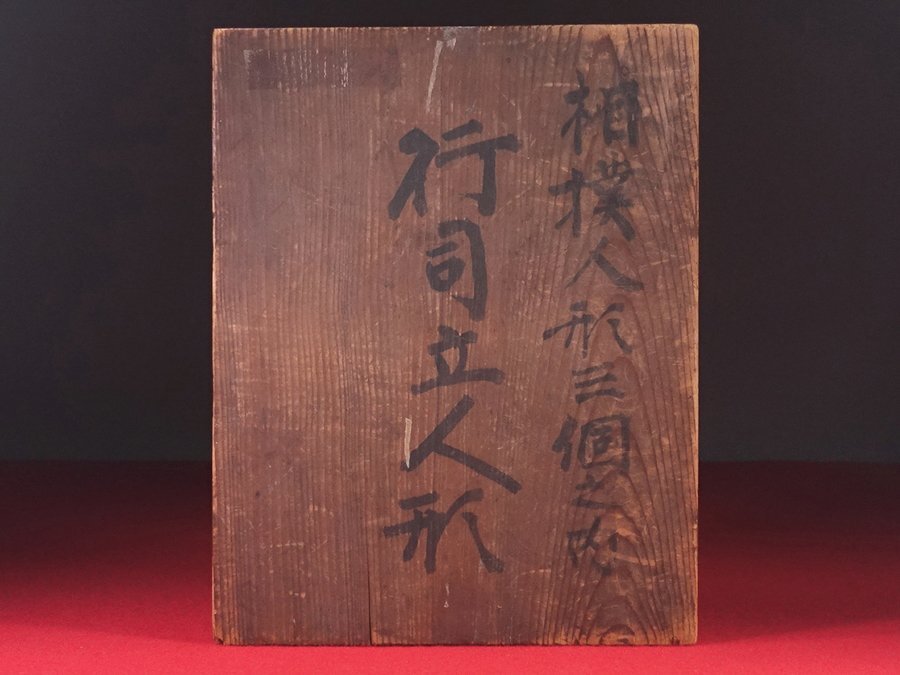 相撲人形三個之内
行司立人形